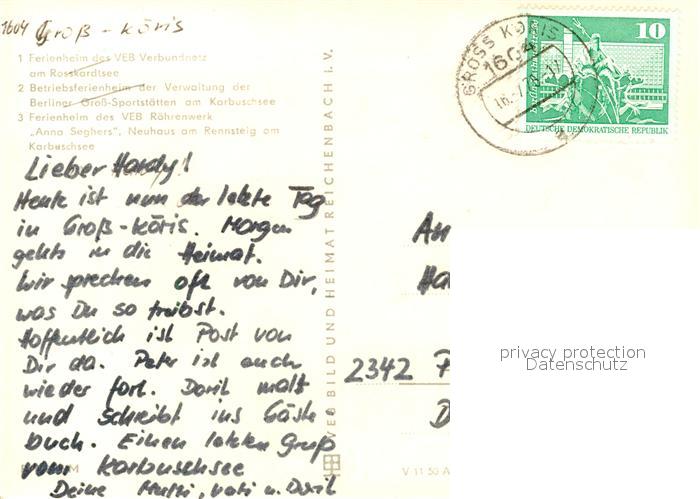 1604 Groß-Köris
1 Ferienheim des VEB Verbundnetz
am Rosskardtsee
2 Betriebsferienheim der Verwaltung der
Berliner Groß-Sportstätten am Karbuschsee
3 Ferienheim des VEB Röhrenwerk
„Anna Seghers", Neuhaus am Rennsteig am
Karbuschsee
Lieber Hardy!
Heute ist nun der letzte Tag
in Groß-Köris. Morgen
gehts in die Heimat.
Wir sprechen oft von Dir,
was Du so treibst.
Hoffentlich ist Post von
Dir da. Peter ist auch
wieder fort. Dorit malt
und schreibt ins Gäste-
buch. Einen letzten Gruß
vom Karbuschsee
Deine Mutti, Vati u. Dorit
VEB BILD UND HEIMAT REICHENBACH I. V.
V 11 50 A
GROSS KÖRIS
1604
10
DEUTSCHE DEMOKRATISCHE REPUBLIK
An
Ha
2342
privacy protection
Datenschutz